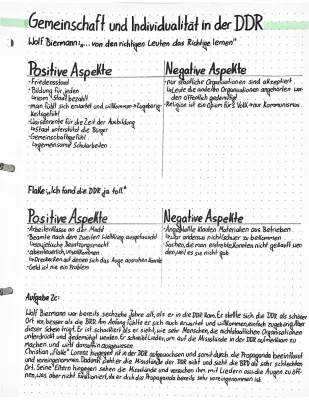 Gemeinschaft und Individualität in der DDR
Wolf Biermann: „... von den richtigen Leuten das Richtige lernen"
Positive Aspekte
Negative Aspekte
· Friedensstaat
· Bildung für jeden
↳ vom Staat bezahlt
· man fühlt sich erwartet und willkommen → Zugehörig-
keitsgefühl
· Waisenrente für die Zeit der Ausbildung
↳ Staat unterstützt die Bürger
· Gemeinschaftsgefühl
↳ gemeinsame Schularbeiten
· nur staatliche Organisationen sind akzeptiert
↳ Leute die anderen Organisationen angehörten wer-
den öffentlich gedemütigt
· Religion ist ein Opium für's Volk → nur Kommunismus
Flake: „Ich fand die DDR ja toll"
Positive Aspekte
Negative Aspekte
· Arbeiterklasse an der Macht
· Beamte nach dem zweiten Weltkrieg ausgetauscht
↳ sowjetische Besatzungsmacht
· abenteuerlich, unvollkommen
↳ Dreckecken auf denen sich das Auge ausruhen konnte
· Geld ist nie ein Problem
· Angestellte klauten Materialien aus Betrieben
↳ war anderswo nicht/schwer zu bekommen
· Sachen, die man erstrebte, konnten nicht gekauft wer-
den, weil es sie nicht gab
Aufgabe 2c:
Wolf Biermann war bereits sechzehn Jahre alt, als er in die DDR kam. Er stellte sich die DDR als schöner
Ort vor, besser als die BRD. Am Anfang fühlte er sich auch erwartet und willkommen, einfach zugehörig. Aber
dieser Schein trügt. Er ist schockiert als er sieht, wie sehr Menschen, die nichtstaatliche Organisationen
unterstützt und gedemütigt werden. Er schreibt Lieder, um auf die Missstände in der DDR aufmerksam zu
machen und wird daraufhin ausgewiesen.
Christian „Flake" Lorenz hingegen ist in der DDR aufgewachsen und somit durch die Propaganda beeinflusst
und voreingenommen. Dadurch sieht er die Missstände der DDR nicht und sieht die BRD als sehr schlechten
Ort. Seine Eltern hingegen sehen die Missstände und versuchen ihm mit Liedern das die Augen zu öff-
nen, was aber nicht funktioniert, da er durch die Propaganda bereits sehr voreingenommen ist.